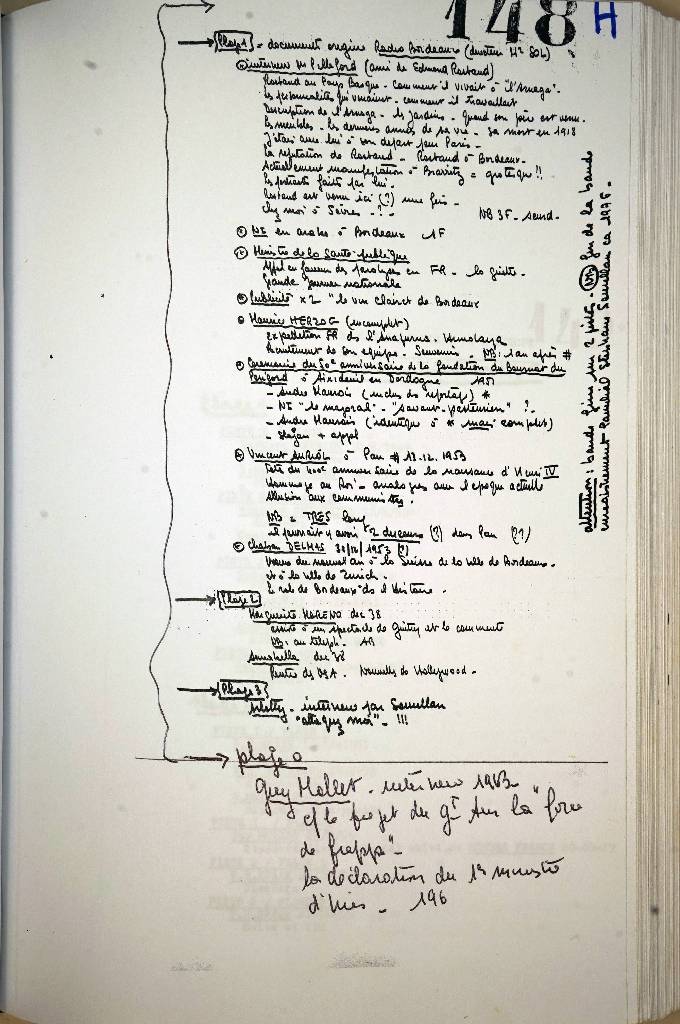 148 H
Plage 1 = documents origine Radio Bordeaux
interview (ami de Edmond Rostand)
Rostand au Pays Basque - Comment il vivait à "l'Arnaga" -
les personnalités qui venaient - comment il travaillait
Description de l'Arnaga - les jardins - quand son père est venu.
les meubles - les dernières années de sa vie - sa mort en 1918
J'étais avec lui à son départ pour Paris -
la réputation de Rostand - Rostand à Bordeaux -
Actuellement manifestation à Biarritz = grotesque !!
les portraits faits par lui -
Rostand est venu ici (?) une fois -
chez moi à - ? - NB 3F -
NI en arabe à Bordeaux 1F
Ministre de la Santé publique
Appel en faveur des en FR -
Grande Journée nationale
Publicité x 2 "le vin clairet de Bordeaux
Maurice HERZOG (incomplet)
expédition FR ds l'Anapurna - Himalaya
Recrutement de son équipe - Souvenirs - NB : 1 an après #
Ceremonie du 50e anniversaire de la fondation du Bournat du
Périgord à en Dordogne 1951
- André Maurois (inclus ds reportage) *
- NI "le majoral" - ?
- André Maurois (identique à * mais complet)
- + appl
Vincent AURIOL à Pau # 12.12.1953
Fête du 400e anniversaire de la naissance d'Henri IV
Hommage au Roi - analogies avec l'époque actuelle
Allusion aux communistes.
NB = TRES long
il pourrait y avoir 2 discours (?) dans Pau (??)
Chaban DELMAS 30/12/1953 (?)
Voeux du nouvel an à la Suisse de la ville de Bordeaux -
et à la ville de Zurich -
Le rôle de Bordeaux ds l'Histoire -
Plage 2
Marguerite MORENO dec 38
assiste à un spectacle de Guitry et le commente
NB : au téleph -
Annabella dec 38
Rentre des USA - Nouvelles de Hollywood -
Plage 3
Arletty - interview par Semellan
"attaquez moi" - !!!
plage 0
Guy Mollet - interview 1963 -
c/ le projet du Gt sur la "force
de frappe" -
la déclaration du 1er ministre
d'hier - 196
attention : bande 2 pistes - NB fin de la bande
enregistrement familial Semellan ca 1975 -